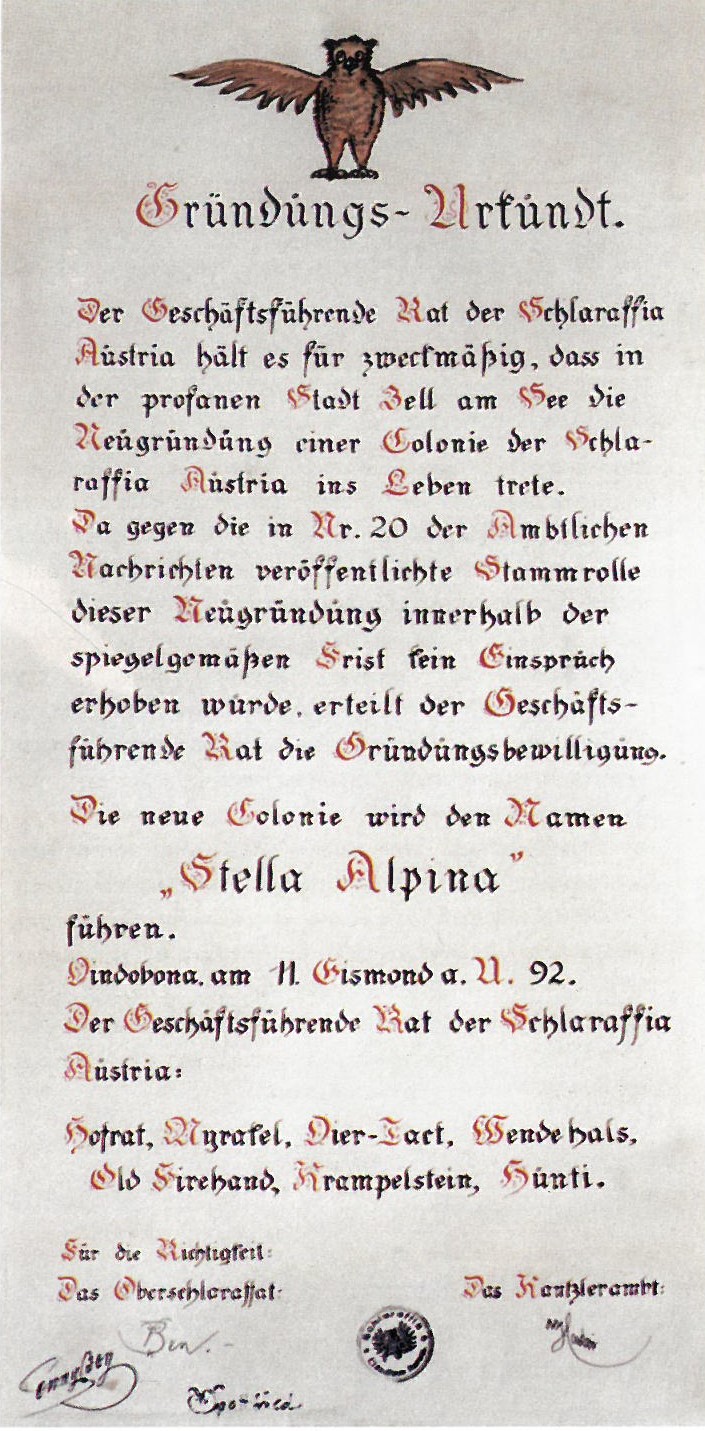 Gründungs-Urkundt.
Der Geschäftsführende Rat der Schlaraffia
Austria hält es für zweckmäßig, dass in
der profanen Stadt Zell am See die
Neugründung einer Colonie der Schla-
raffia Austria ins Leben trete.
Da gegen die in Nr. 20 der Ambtlichen
Nachrichten veröffentlichte Stammrolle
dieser Neugründung innerhalb der
spiegelgemäßen Frist kein Einspruch
erhoben wurde, erteilt der Geschäfts-
führende Rat die Gründungsbewilligung.
Die neue Colonie wird den Namen
„Stella Alpina"
führen.
Vindobona, am 11. Eismond a. U. 92.
Der Geschäftsführende Rat der Schlaraffia
Austria:
Hofrat, Myrakel, Vier-Tact, Wendehals,
Old Firehand, Krampelstein, Hunti.
Für die Richtigkeit:
Das Oberschlaraffat: Das Kantzlerambt: